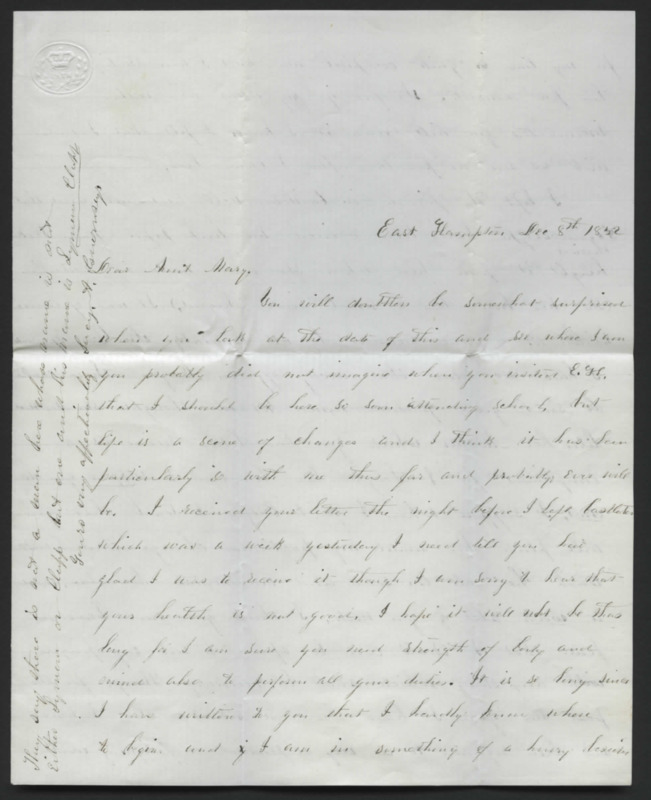 East Hampton, Dec 8th 18
Dear Aunt Mary,
You will doubtless be somewhat surprised
when you look at the date of this and see where I am
you probably did not imagine when you visited E. H.
that I should be here so soon attending school, but
life is a scene of changes and I think it has been
particularly so with me thus far and probably ever will
be. I received your letter the night before I left Castleton
which was a week yesterday I need not tell you how
glad I was to receive it though I am sorry to hear that
your health is not good, I hope it will not be thus
long for I am sure you need strength of body and
mind also to perform all your duties. It is so long since
I have written to you that I hardly know where
to begin and I am in something of a hurry besides
They say there is not a man here whose name is not
either Lyman or Clapp but one and his name is Lyman Clapp
Yours very affectionately Lucy A.